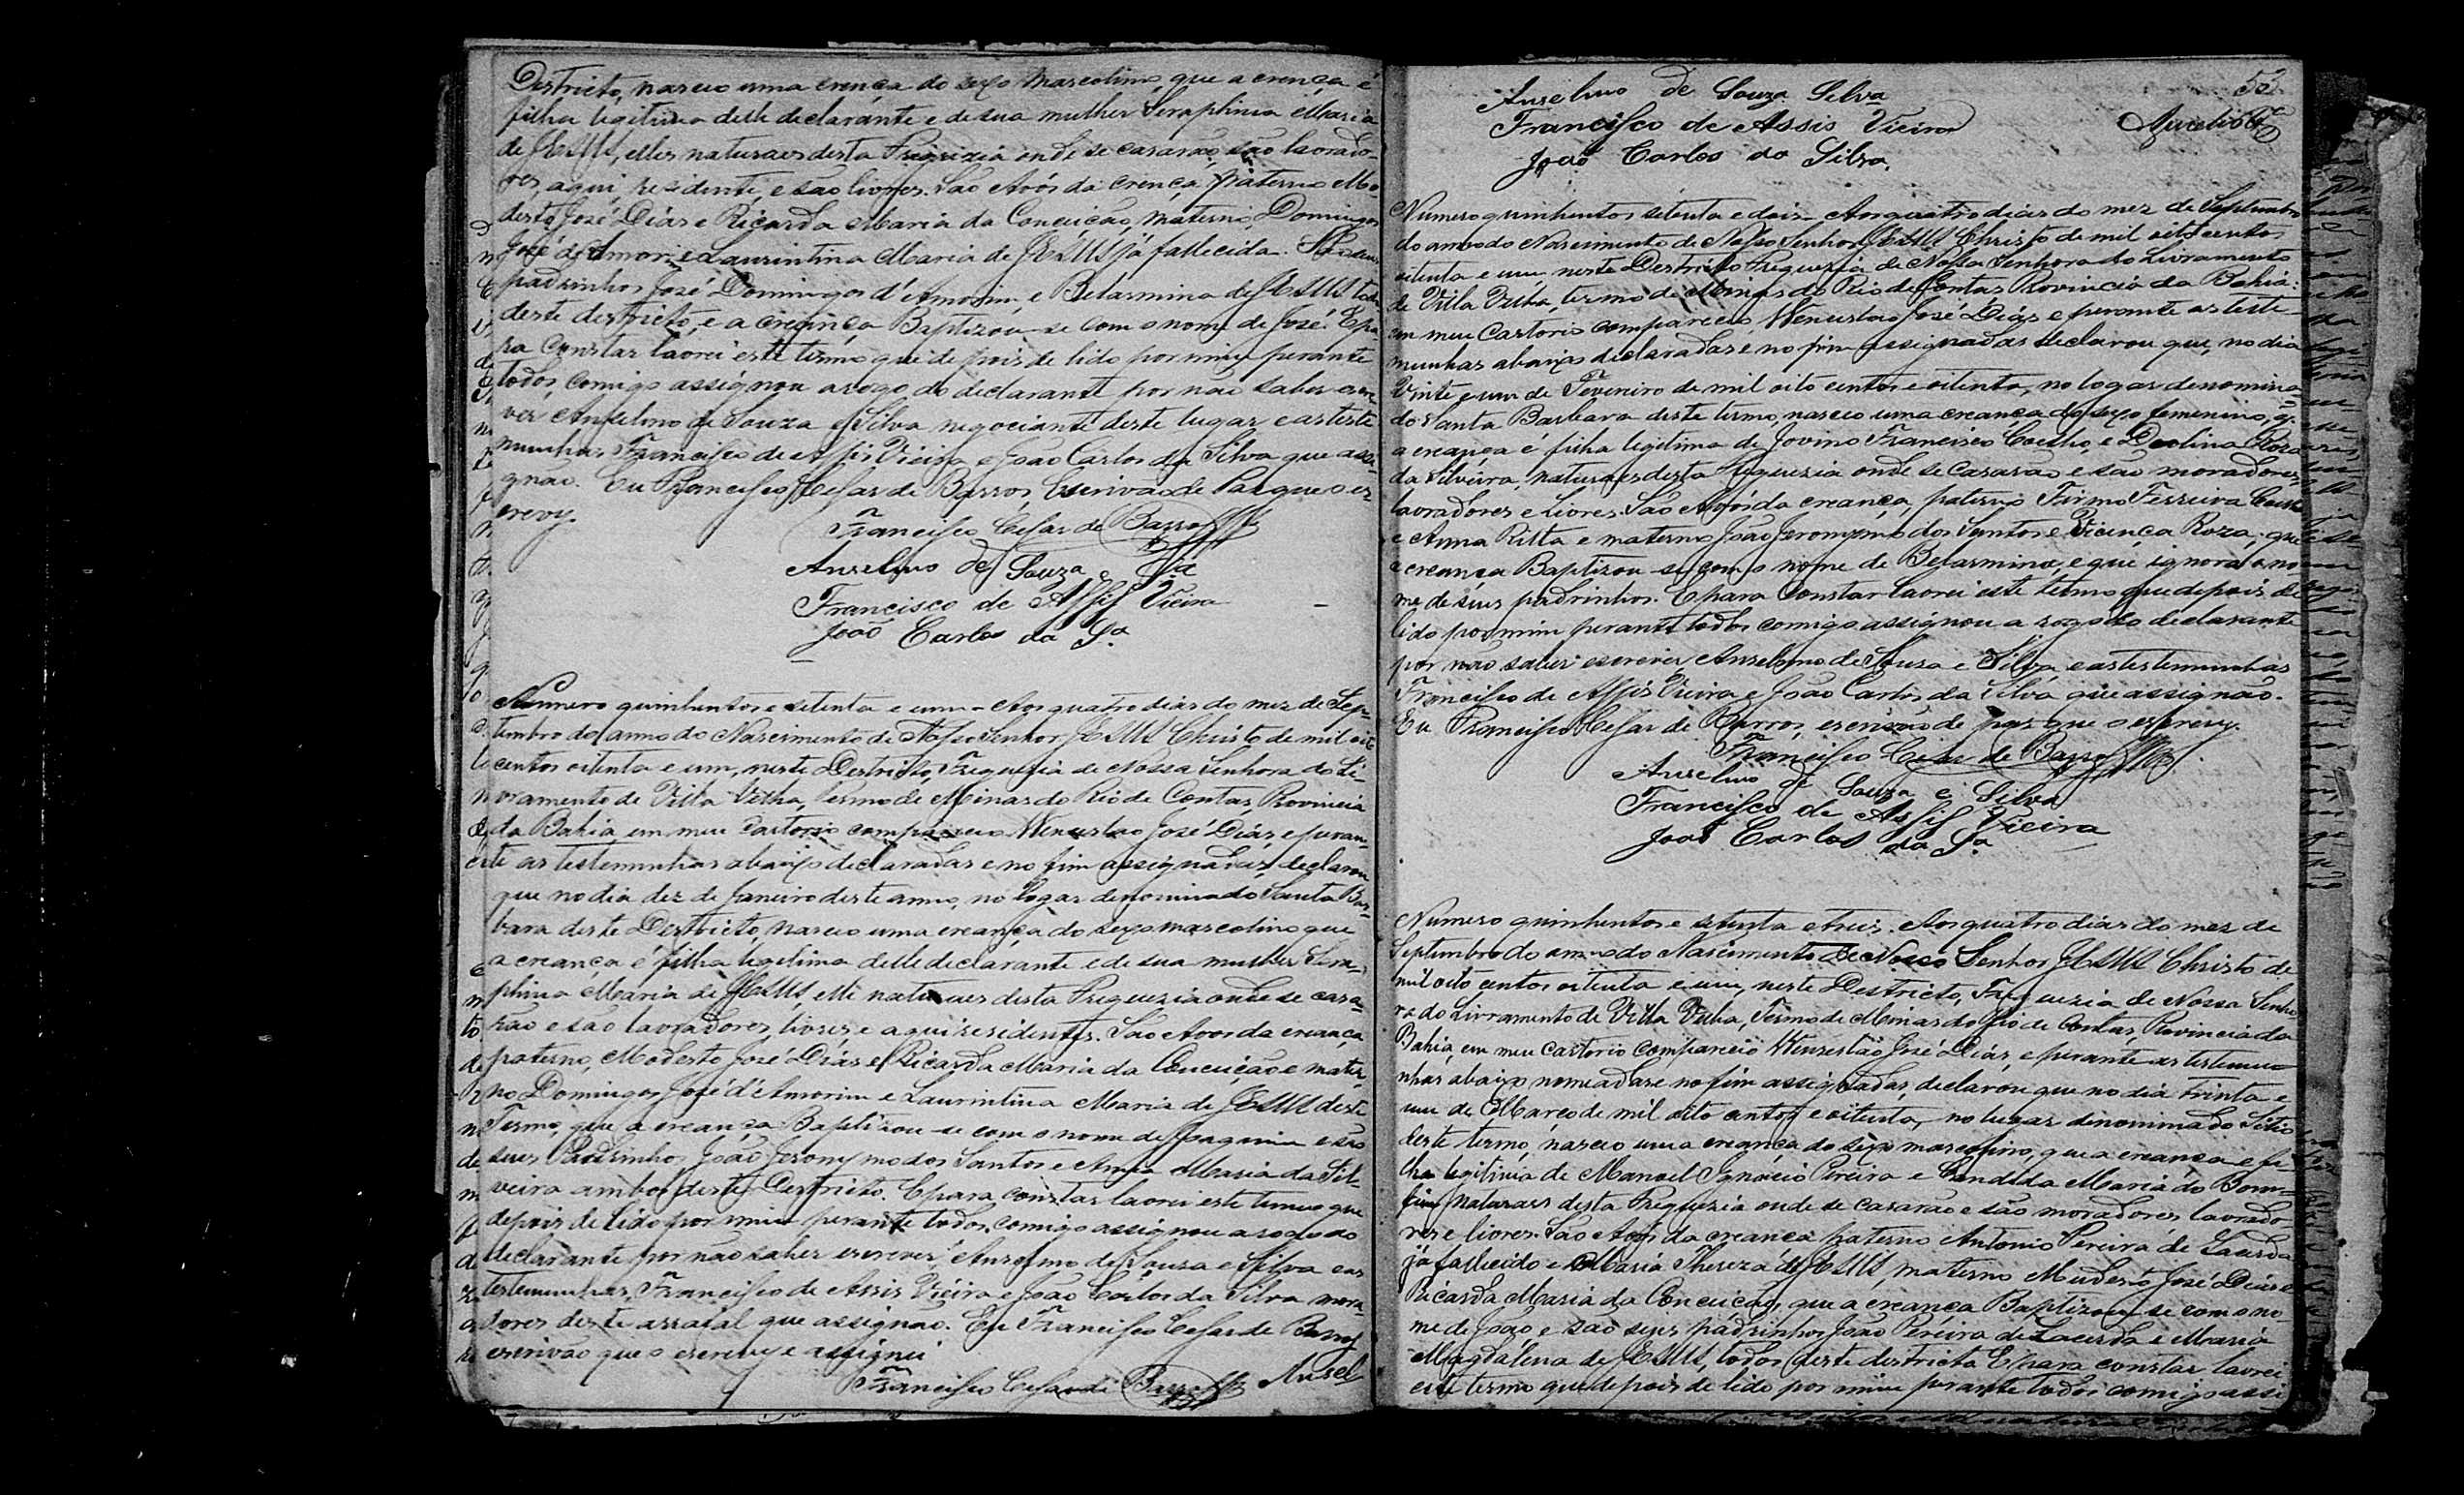 Destricto, nasceu uma crença do sexo mascolino, que a crença é
filha legitima delle declarante e de sua mulher Seraphina Maria
de JESUS, elles naturaes desta Freguizia onde se casarão, são lavrado-
res, aqui residente, e são livres. São Avós da crença, paterno Mo-
desto José Dias e Ricarda Maria da Conceição, materno, Domingos
José d'Amorim e Laurintina Maria de JESUS já fallecida. São seus
padrinhos José Domingos d'Amorim, e Belarmina de JESUS todos
deste destricto, e a creança Baptizou-se com o nome de José. E pa-
ra constar lavrei este termo que depois de lido por mim perante
todos, comigo assignou a rogo do declarante por não saber escre-
ver Anselmo de Souza e Silva negociante deste lugar e as teste
munhas Francisco de Assis Vieira e João Carlos da Silva que assi-
gnão. Eu Francisco Cesar de Barros Escrivão de Paz que o es
crevy.
Francisco Cesar de Barros
Anselmo de Souza e Sa
Francisco de Assis Vieira
João Carlos da Sa.
Numero quinhentos e setenta e um - Aos quatro dias do mez de Sep-
tembro do anno do Nascimento de Nosso Senhor JESUS Christo de mil oito
centos oitenta e um, neste Destricto, Freguezia de Nossa Senhora do Li-
vramento de Villa Velha, Termo de Minas do Rio de Contas Provincia
da Bahia em meu Cartorio compareceu Wenceslao José Dias, e peran-
te as testemunhas abaixo declaradas e no fim assignadas, declarou
que no dia dez de Janeiro deste anno, no logar denominado Santa Bar-
bara deste Destricto, nasceu uma creança do sexo mascolino que
a creança é filha legitima delle declarante e de sua mulher Sera-
phina Maria de JESUS, elle naturaes desta Freguezia onde se casa-
rão e são lavradores, livres, e aqui residentes. São Avos da creança
paterno, Modesto José Dias e Ricarda Maria da Conceição e mater-
no Domingos José d'Amorim e Laurintina Maria de JESUS deste
Termo, que a creança Baptizou-se com o nome de Joaquim e são
seus Padrinhos João Jeronymo dos Santos e Anna Maria da Sil-
veira ambos deste Destricto. E para constar lavrei este termo que
depois de lido por mim perante todos, comigo assignou a rogo do
declarante por não saber escrever, Anselmo de Souza e Silva e as
testemunhas, Francisco de Assis Vieira e João Carlos da Silva mora
dores deste arraial que assignão. Eu Francisco Cesar de Barros
escrivão que o escrevy e assignei
Francisco Cesar de Barros Ansel
52
Anselmo de Souza Silva
Francisco de Assis Vieira
João Carlos da Silva.
Numero quinhentos setenta e dois - Aos quatro dias do mez de Septembro
do anno do Nascimento de Nosso Senhor JESUS Christo de mil oito centos
oitenta e um, neste Destricto Freguezia de Nossa Senhora do Livramento
de Villa Velha, termo de Minas do Rio de Contas Provincia da Bahia:
em meu Cartorio compareceu, Wenceslao José Dias e perante as teste-
munhas abaixo declaradas e no fim assignadas declarou que, no dia
Vinte e um de Fevereiro de mil oito centos e oitenta, no logar denomina-
do Santa Barbara deste termo, nasceu uma creança do sexo femenino, q.
a creança é filha legitima de Jovino Francisco Coelho, e Deolina Roza
da Silveira, naturaes desta Freguezia onde se casarão e são moradores,
lavradores e livres. São Avós da creança, paterno Firmo Ferreira
e Anna Ritta e materno João Jeronymo dos Santos e Vicença Roza, que
a creança Baptizou-se com o nome de Belarmina, e que ignora o no
me de seus padrinhos. E para constar lavrei este termo que depois de
lido por mim perante todos comigo assignou a rogo do declarante
por não saber escrever, Anselmo de Souza e Silva, e as testemunhas
Francisco de Assis Vieira e João Carlos da Silva que assignão.
Eu Francisco Cesar de Barros, escrivão de paz que o escrevy.
Francisco Cesar de Barros
Anselmo de Souza e Silva
Francisco de Assis Vieira
João Carlos da Sa.
Numero quinhentos e setenta e treis. Aos quatro dias do mez de
Septembro do anno do Nascimento de Nosso Senhor JESUS Christo de
mil oito centos oitenta e um, neste Destricto, Freguezia de Nossa Senho
ra do Livramento de Villa Velha, Termo de Minas do Rio de Contas, Provincia da
Bahia, em meu Cartorio compareceo Wenceslao José Dias, e perante as testemu-
nhas abaixo nomeadas e no fim assignadas, declarou que no dia trinta e
um de Março de mil oito centos e oitenta, no lugar denominado Sitio
deste termo, nasceu uma creança do sexo mascolino, que a creança é fi-
lha legitimia de Manoel Ignacio Pereira e Candida Maria do Bom-
fim naturaes desta Freguezia onde se casarão e são moradores lavrado-
res e livres. São Avós da creança Paterno Antonio Pereira de Lacerda
já fallecido e Maria Thereza de JESUS, materno Modesto José Dias e
Ricarda Maria da Conceição, que a creança Baptizou-se com o no
me de João e são seus padrinhos João Pereira de Lacerda e Maria
Magdalena de JESUS, todos deste destricto E para constar lavrei
este termo que depois de lido por mim perante todos comigo assi